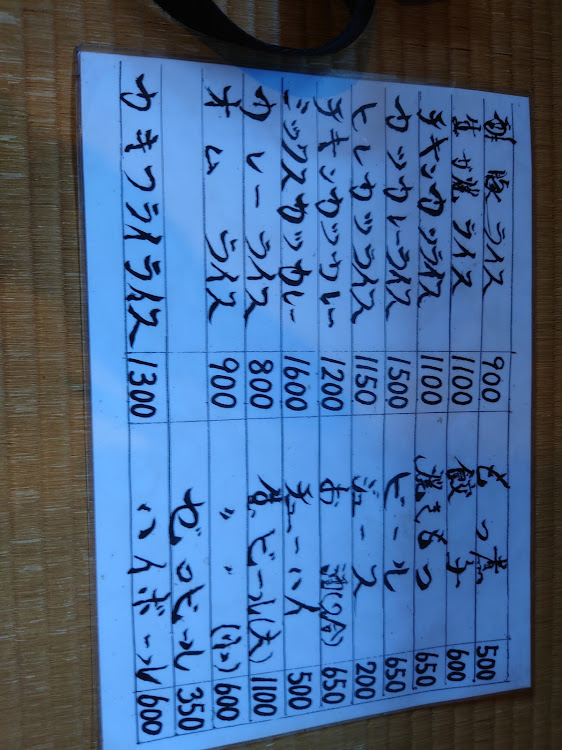 ライス 900 もつ煮 500
生が焼ライス 1100 餃子 600
チキンカツライス 1100 焼きもつ 650
カツカレーライス 1500 ビール 650
ヒレカツライス 1150 ジュース 200
チキンカツカレー 1200 お酒(2合) 650
ミックスカツカレー 1600 チューハイ 500
カレーライス 800 生ビール(大) 1100
オムライス 900 〃 〃 (小) 600
ゼロビール 350
カキフライライス 1300 ハイボール 600